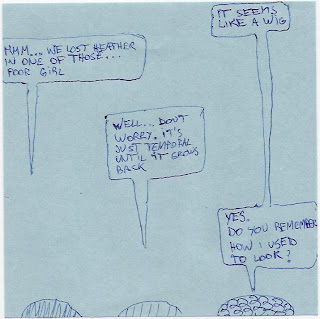 MMM... WE LOST HEATHER
IN ONE OF THOSE...
POOR GIRL
WELL... DONT
WORRY. IT'S
JUST TEMPORAL
UNTIL IT GROWS
BACK
IT SEEMS
LIKE A WIG
YES.
DO YOU REMEMBER
HOW I USED
TO LOOK?